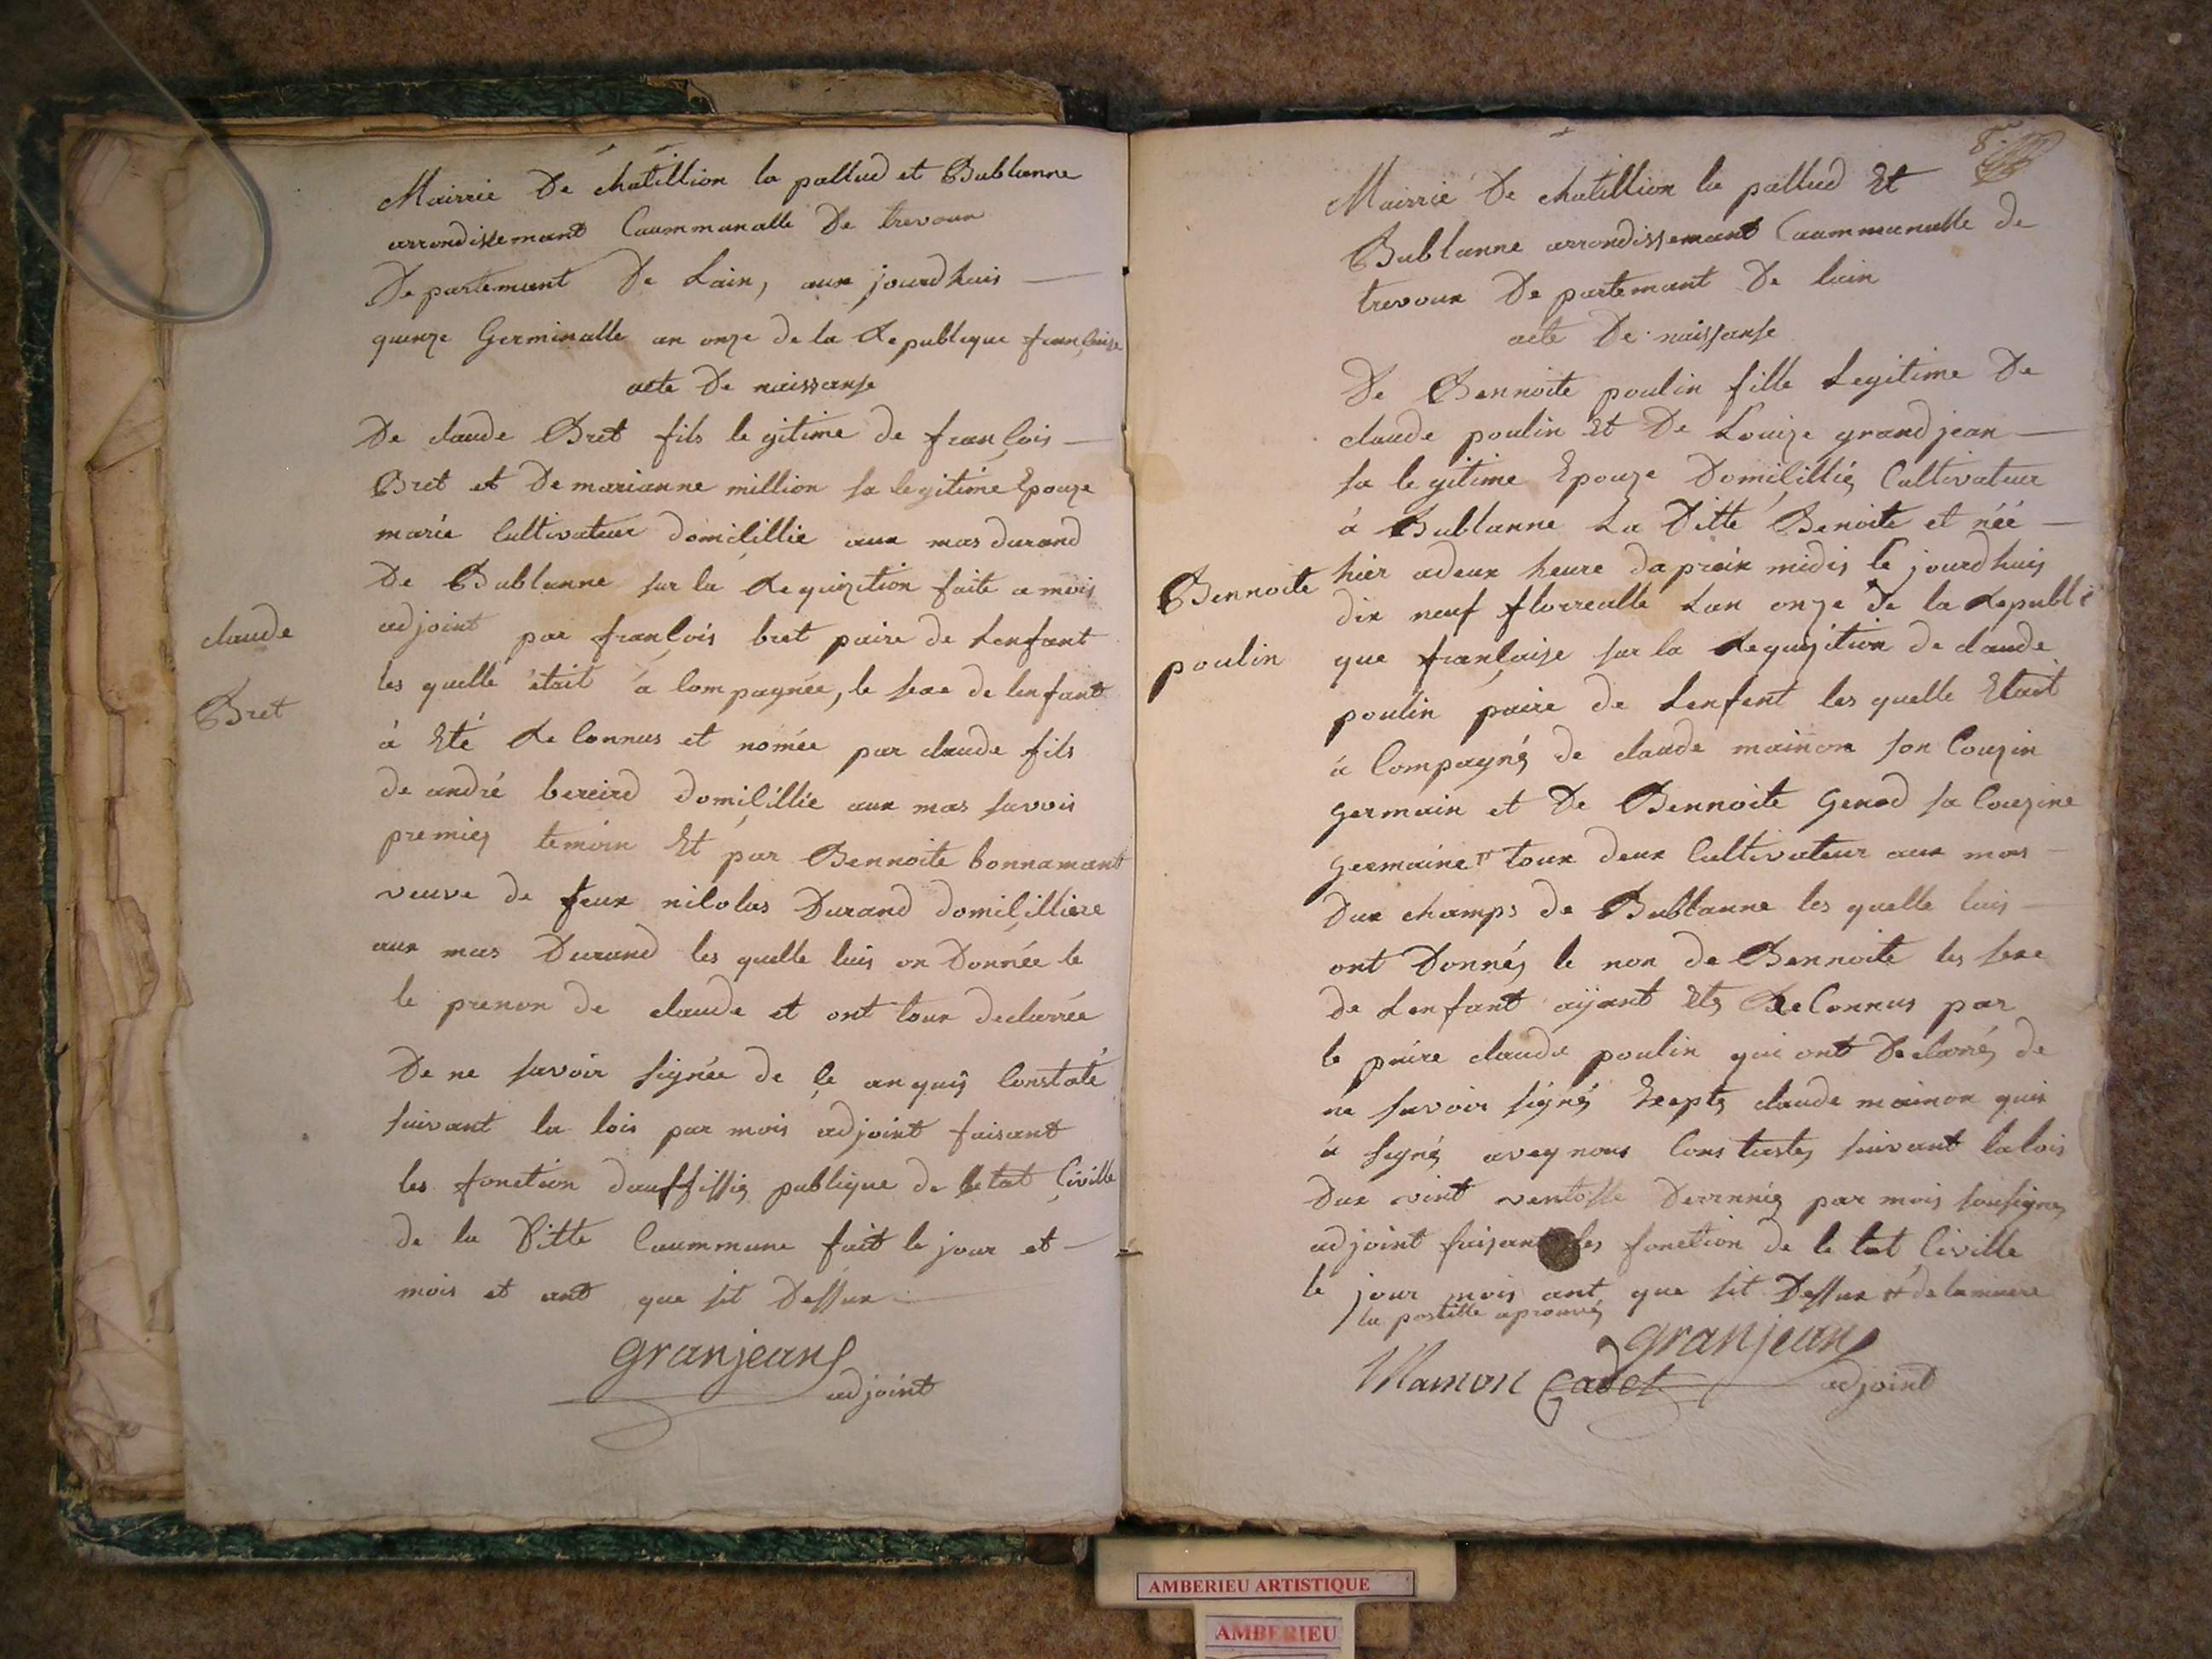 Mairrie De chatillion la pallud et Bublanne
arrondissemant Caummunalle De trevoux
Departemant De Lain, aux jourdhuis
quinze Germinalle an onze de la Republique françaize
acte De naissanse
De claude Bret fils legitime de françois
Bret et De marianne million sa legitime Epouze
marié Cultivateur domiçillié aux mas durand
De Bublanne sur la Requizition faite a mois
adjoint par françois bret paire de Lenfant
les quelle était á Compagnée, le sexe de lenfant
á Eté Reconnus et nomée par claude fils
de andré bereird domiçillié aux mas savois
premiez temoin Et par Bennoite bonnamant
veuve de feux nicolas Durand domiçilliere
aux mas Durand les quelle luis on Donnée le
le prenon de claude et ont tour declarrée
De ne savoir signée de çe anquis Constaté
suivant la lois par mois adjoint faisant
les fonction dauffissiez publique de le tat Çiville
de la Ditte Caummune fait le jour et
mois et ant que sit Dessux
granjean
adjoint
claude
Bret
8
Mairrie De chatillion la pallud Et
Bublanne arrondissemant Caummunalle de
trevoux Departemant De lain
acte De naissanse
De Bennoite poulin fille Legitime De
claude poulin Et De Louize grandjean
sa legitime Epouze Domiçilliéz Cultivateur
á Bublanne La Ditte Benoite et néé
hier adeux heure daprair midis le jourdhuis
dix neuf florrealle Lan onze de la Republi
que françaize sur la Requizition de claude
poulin paire de Lenfent les quelle Etait
á Compagnéz de claude mainon son Couzin
germain et De Bennoite Genod sa Couzine
germaine tour deux Cultivateur aux mas
Dux champs de Bublanne les quelle luis
ont Donnéz le non de Bennoite les sexe
de Lenfant aÿant Etéz ReConnus par
le paire claude poulin qui ont Declarréz de
ne savoir signéz Exeptéz claude mainon quis
á signéz avéq nous Constastéz suivant la lois
Dux vint ventosse Derrniéz par mois sousignéz
adjoint faizant les fonction de le tat Civille
le jour mois ant que sit Dessux # de lamaire
la postille aprouvéz
granjean
Mamon Cadet adjoint
Bennoite
poulin
AMBERIEU ARTISTIQUE
AMBERIEU